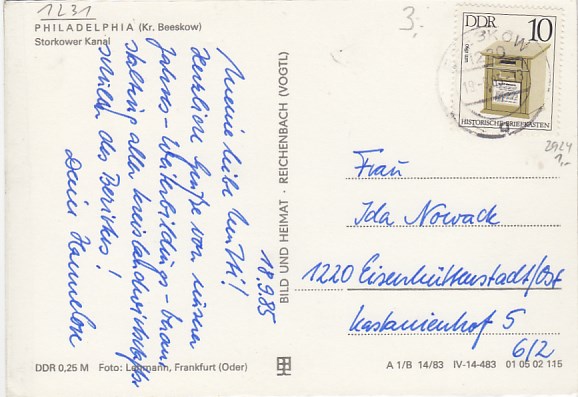 1231
PHILADELPHIA (Kr. Beeskow)
Storkower Kanal
3,-
DDR 10
HISTORISCHE BRIEFKASTEN
2924
1,-
Meine liebe Mutti!
Herzliche Grüße von unserer
Jahres-Weiterbildungs-Veran
staltung aller
schulden des Bezirkes!
Deine Hannelore
18.9.85
BILD UND HEIMAT · REICHENBACH (VOGTL)
Frau
Ida Nowack
1220 Eisenhüttenstadt/Ost
Kastanienhof 5
6/2
DDR 0,25 M Foto: Lehmann, Frankfurt (Oder)
A 1/B 14/83 IV-14-483 01 05 02 115